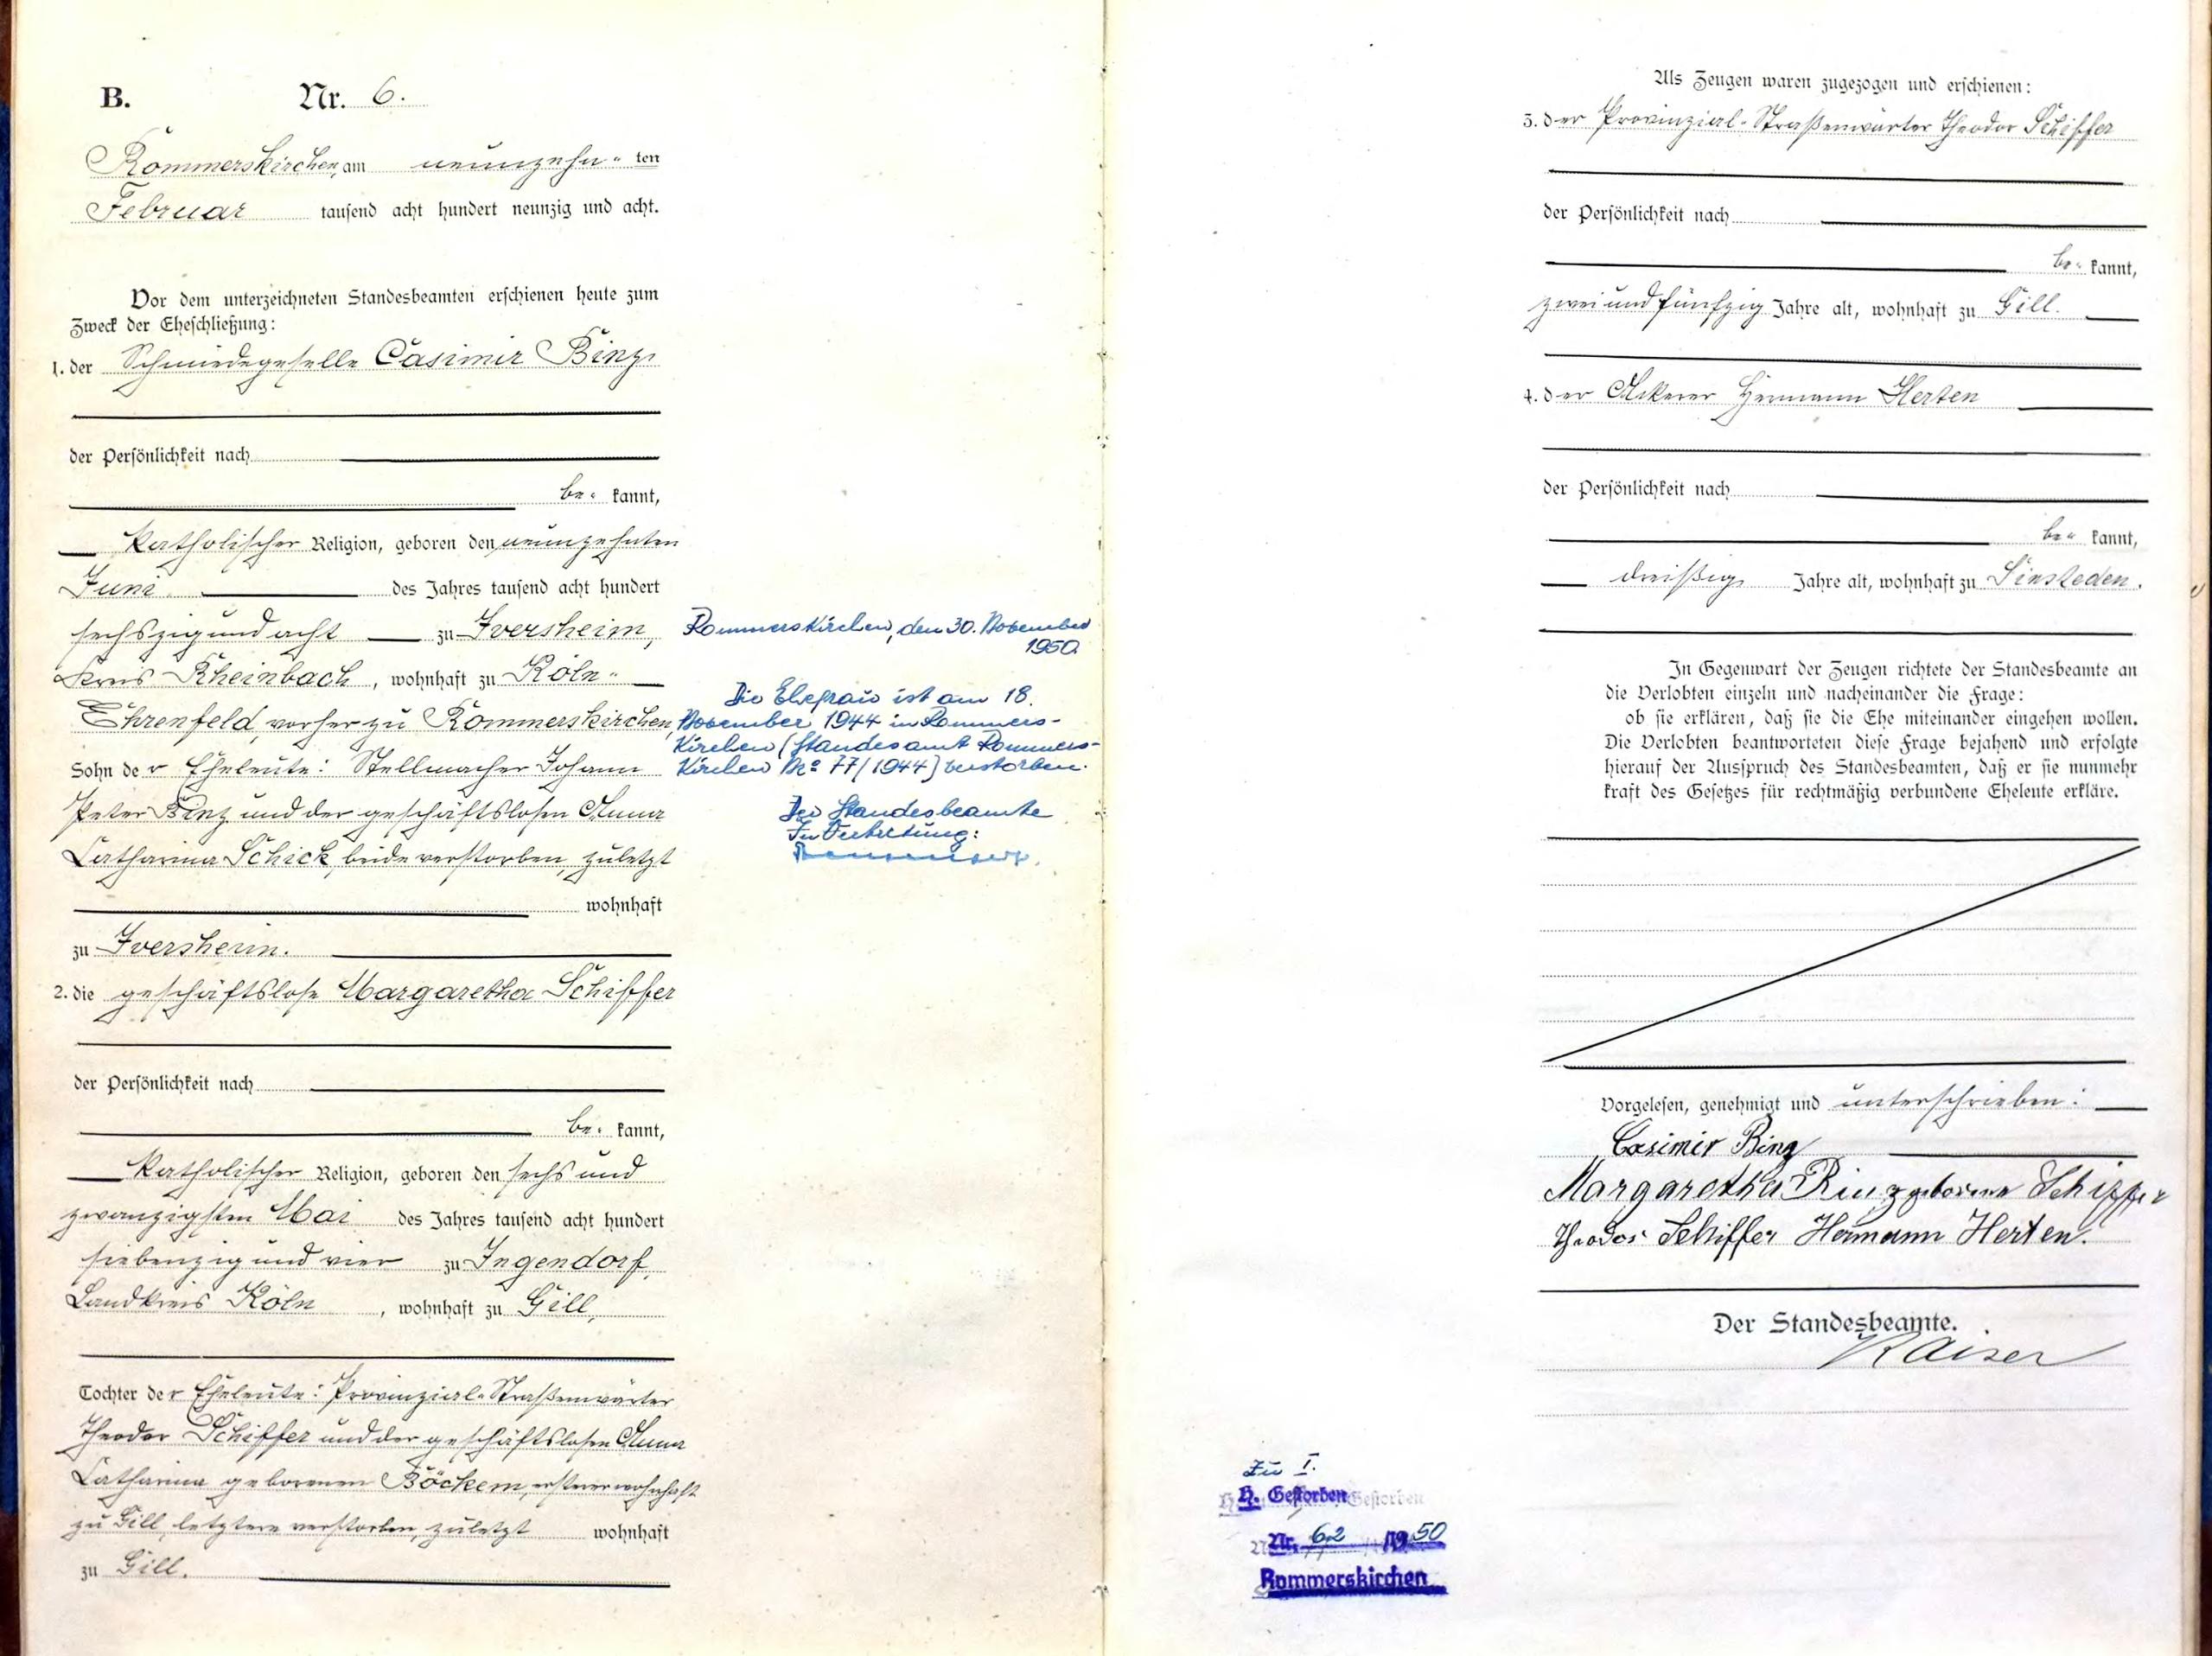 B. Nr. 6.
Rommerskirchen, am neunzehn- ten
Februar tausend acht hundert neunzig und acht.
Vor dem unterzeichneten Standesbeamten erschienen heute zum
Zweck der Eheschließung:
1. der Schmiedegeselle Casimir Binz
der Persönlichkeit nach
be- kannt,
katholischer Religion, geboren den neunzehnten
Juni des Jahres tausend acht hundert
sechszig und acht zu Iversheim,
Kreis Rheinbach, wohnhaft zu Köln-
Ehrenfeld, vorher zu Rommerskirchen,
Sohn der Eheleute: Stellmacher Johann
Peter Binz und der geschäftslosen Anna
Catharina Schick, beide verstorben, zuletzt
wohnhaft
zu Iversheim.
2. die geschäftslose Margaretha Schiffer
der Persönlichkeit nach
be- kannt,
katholischer Religion, geboren den sechs und
zwanzigsten Mai des Jahres tausend acht hundert
siebenzig und vier zu Ingendorf,
Landkreis Köln, wohnhaft zu Gill,
Tochter der Eheleute: Provinzial-Straßenwärter
Theodor Schiffer und der geschäftslosen Anna
Catharina geborenen Böckem, ersterer wohnhaft
zu Gill, letztere verstorben, zuletzt wohnhaft
zu Gill.
Rommerskirchen, den 30. November
1950.
Die Ehefrau ist am 18.
November 1944 in Rommers-
kirchen (Standesamt Rommers-
kirchen No 77/1944) verstorben.
Der Standesbeamte
In Vertretung:
Als Zeugen waren zugezogen und erschienen:
3. der Provinzial-Straßenwärter Theodor Schiffer
der Persönlichkeit nach
be- kannt,
zwei und fünfzig Jahre alt, wohnhaft zu Gill.
4. der Ackerer Hermann Herten
der Persönlichkeit nach
be- kannt,
dreißig Jahre alt, wohnhaft zu Sinsteden.
In Gegenwart der Zeugen richtete der Standesbeamte an
die Verlobten einzeln und nacheinander die Frage:
ob sie erklären, daß sie die Ehe miteinander eingehen wollen.
Die Verlobten beantworteten diese Frage bejahend und erfolgte
hierauf der Ausspruch des Standesbeamten, daß er sie nunmehr
kraft des Gesetzes für rechtmäßig verbundene Eheleute erkläre.
Vorgelesen, genehmigt und unterschrieben:
Casimir Binz
Margaretha Binz geborene Schiffer
Theodor Schiffer Hermann Herten.
Der Standesbeamte.
Kaiser
Zu I.
H. Gestorben
Nr. 62 1950
Rommerskirchen